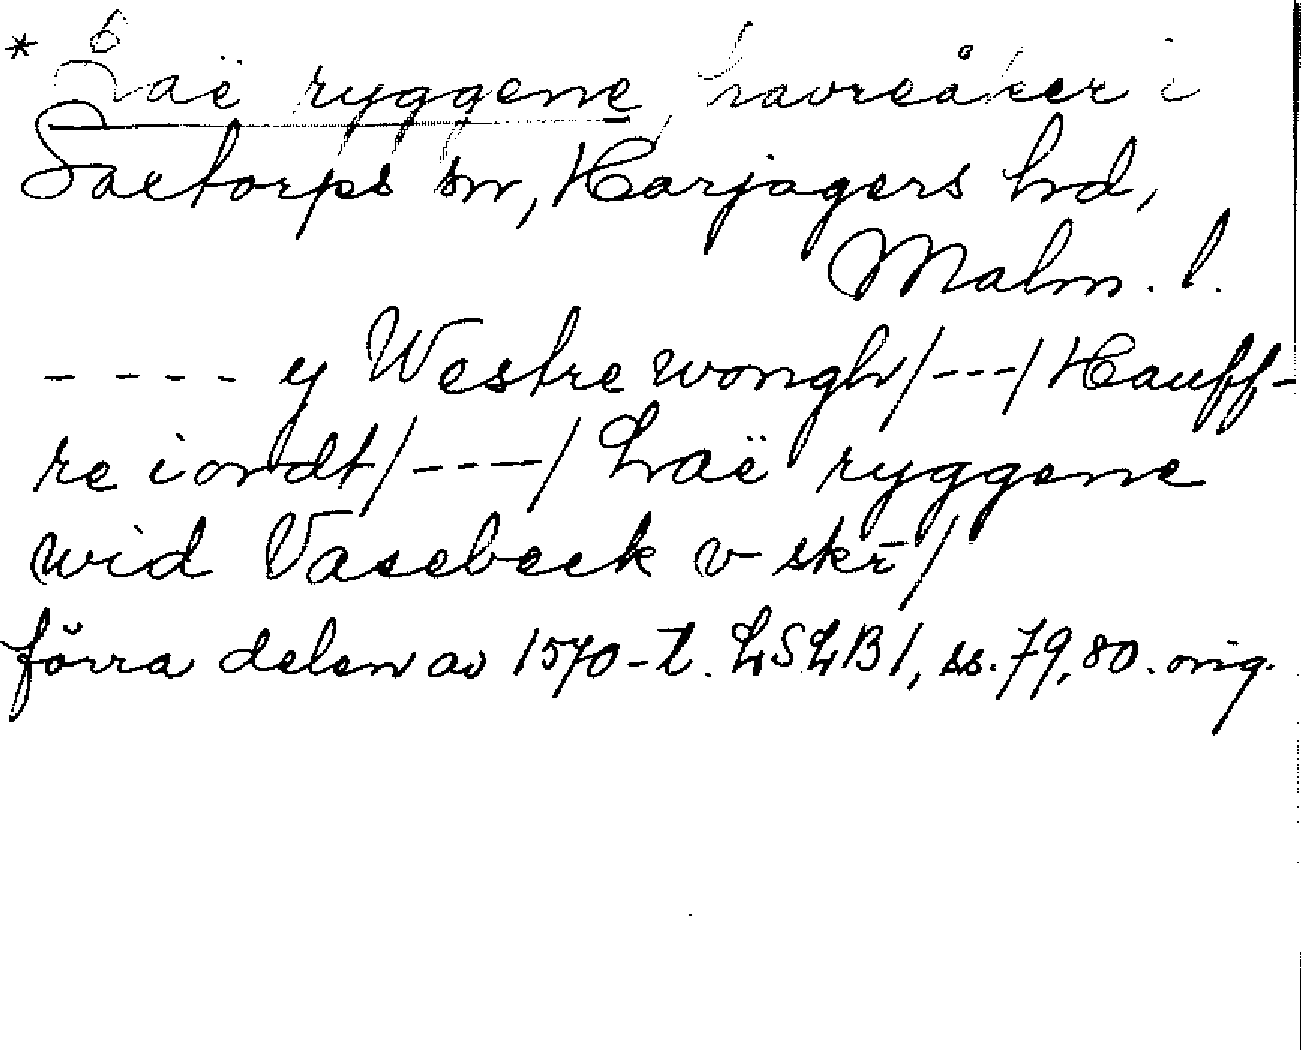 * Laë ryggene, havreåker i
Saxtorps sn, Harjagers hd,
Malm. l.
- - - - y Westre wongh/---/ Hauff-
re iordt/----/ Laë ryggene
wid Vasebeck v- skr-/
förra delen av 1570-t. LSLB 1, ss. 79, 80. orig.